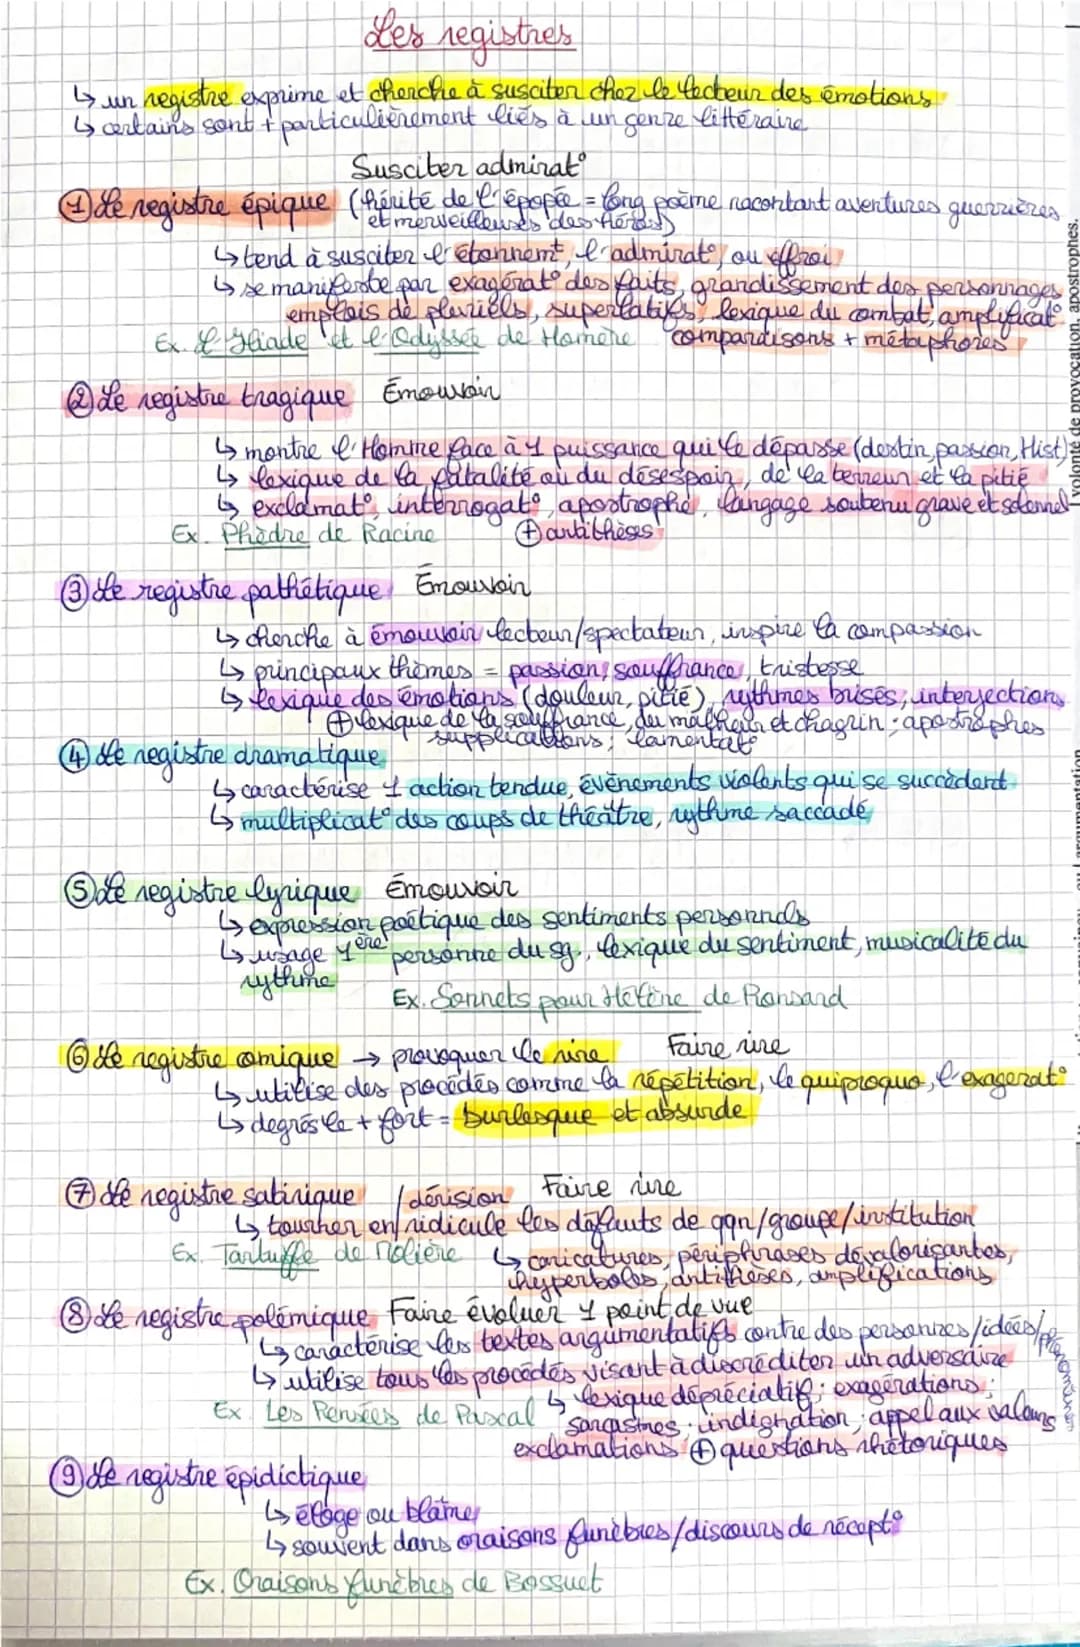 Les registres
↳ un registre exprime et cherche à susciter chez le lecteur des émotions
↳ certains sont + particulièrement liés à un genre littéraire
Susciter admirat°
① Le registre épique (hérité de l'épopée = long poème racontant aventures guerrières
et merveilleuses des héros)
↳ tend à susciter l'étonnemt, l'admirat°, ou effroi
↳ se manifeste par exagérat° des faits, grandissement des personnages
emplois de pluriels, superlatifs, lexique du combat, amplificat°
Ex. L'Iliade et l'Odyssée de Homère comparaisons + métaphores
② Le registre tragique Émouvoir
↳ montre l'Homme face à 1 puissance qui le dépasse (destin, passion, Hist)
↳ lexique de la fatalité ou du désespoir, de la terreur et la pitié
↳ exclamat°, interrogat°, apostrophe, langage soutenu grave et solennel
Ex. Phèdre de Racine ⊕ antithèses
③ Le registre pathétique Émouvoir
↳ cherche à émouvoir lecteur/spectateur, inspire la compassion
↳ principaux thèmes = passion, souffrance, tristesse
↳ lexique des émotions (douleur, pitié), rythmes brisés, interjections
⊕ lexique de la souffrance, du malheur et chagrin ; apostrophes
supplications ; lamentat°
④ Le registre dramatique
↳ caractérise 1 action tendue, événements violents qui se succèdent
↳ multiplicat° des coups de théâtre, rythme saccadé
⑤ Le registre lyrique Émouvoir
↳ expression poétique des sentiments personnels
↳ usage 1ère personne du sg., lexique du sentiment, musicalité du
rythme
Ex. Sonnets pour Hélène de Ronsard
⑥ Le registre comique → provoquer le rire Faire rire
↳ utilise des procédés comme la répétition, le quiproquo, l'exagérat°
↳ degrés le + fort = burlesque et absurde
⑦ Le registre satirique /dérision Faire rire
↳ tourner en/ridicule les défauts de qqn/groupe/institution
Ex. Tartuffe de Molière ↳ caricatures, périphrases dévalorisantes,
hyperboles, antithèses, amplifications
⑧ Le registre polémique Faire évoluer 1 point de vue
↳ caractérise les textes argumentatifs contre des personnes/idées/phénomènes
↳ utilise tous les procédés visant à discréditer un adversaire
↳ lexique dépréciatif ; exagérations ;
Ex. Les Pensées de Pascal sarcasmes ; indignation ; appel aux valeurs
exclamations ⊕ questions rhétoriques
⑨ Le registre épidictique
↳ éloge ou blâme
↳ souvent dans oraisons funèbres/discours de récept°
Ex. Oraisons funèbres de Bossuet
volonté de provocation, apostrophes.